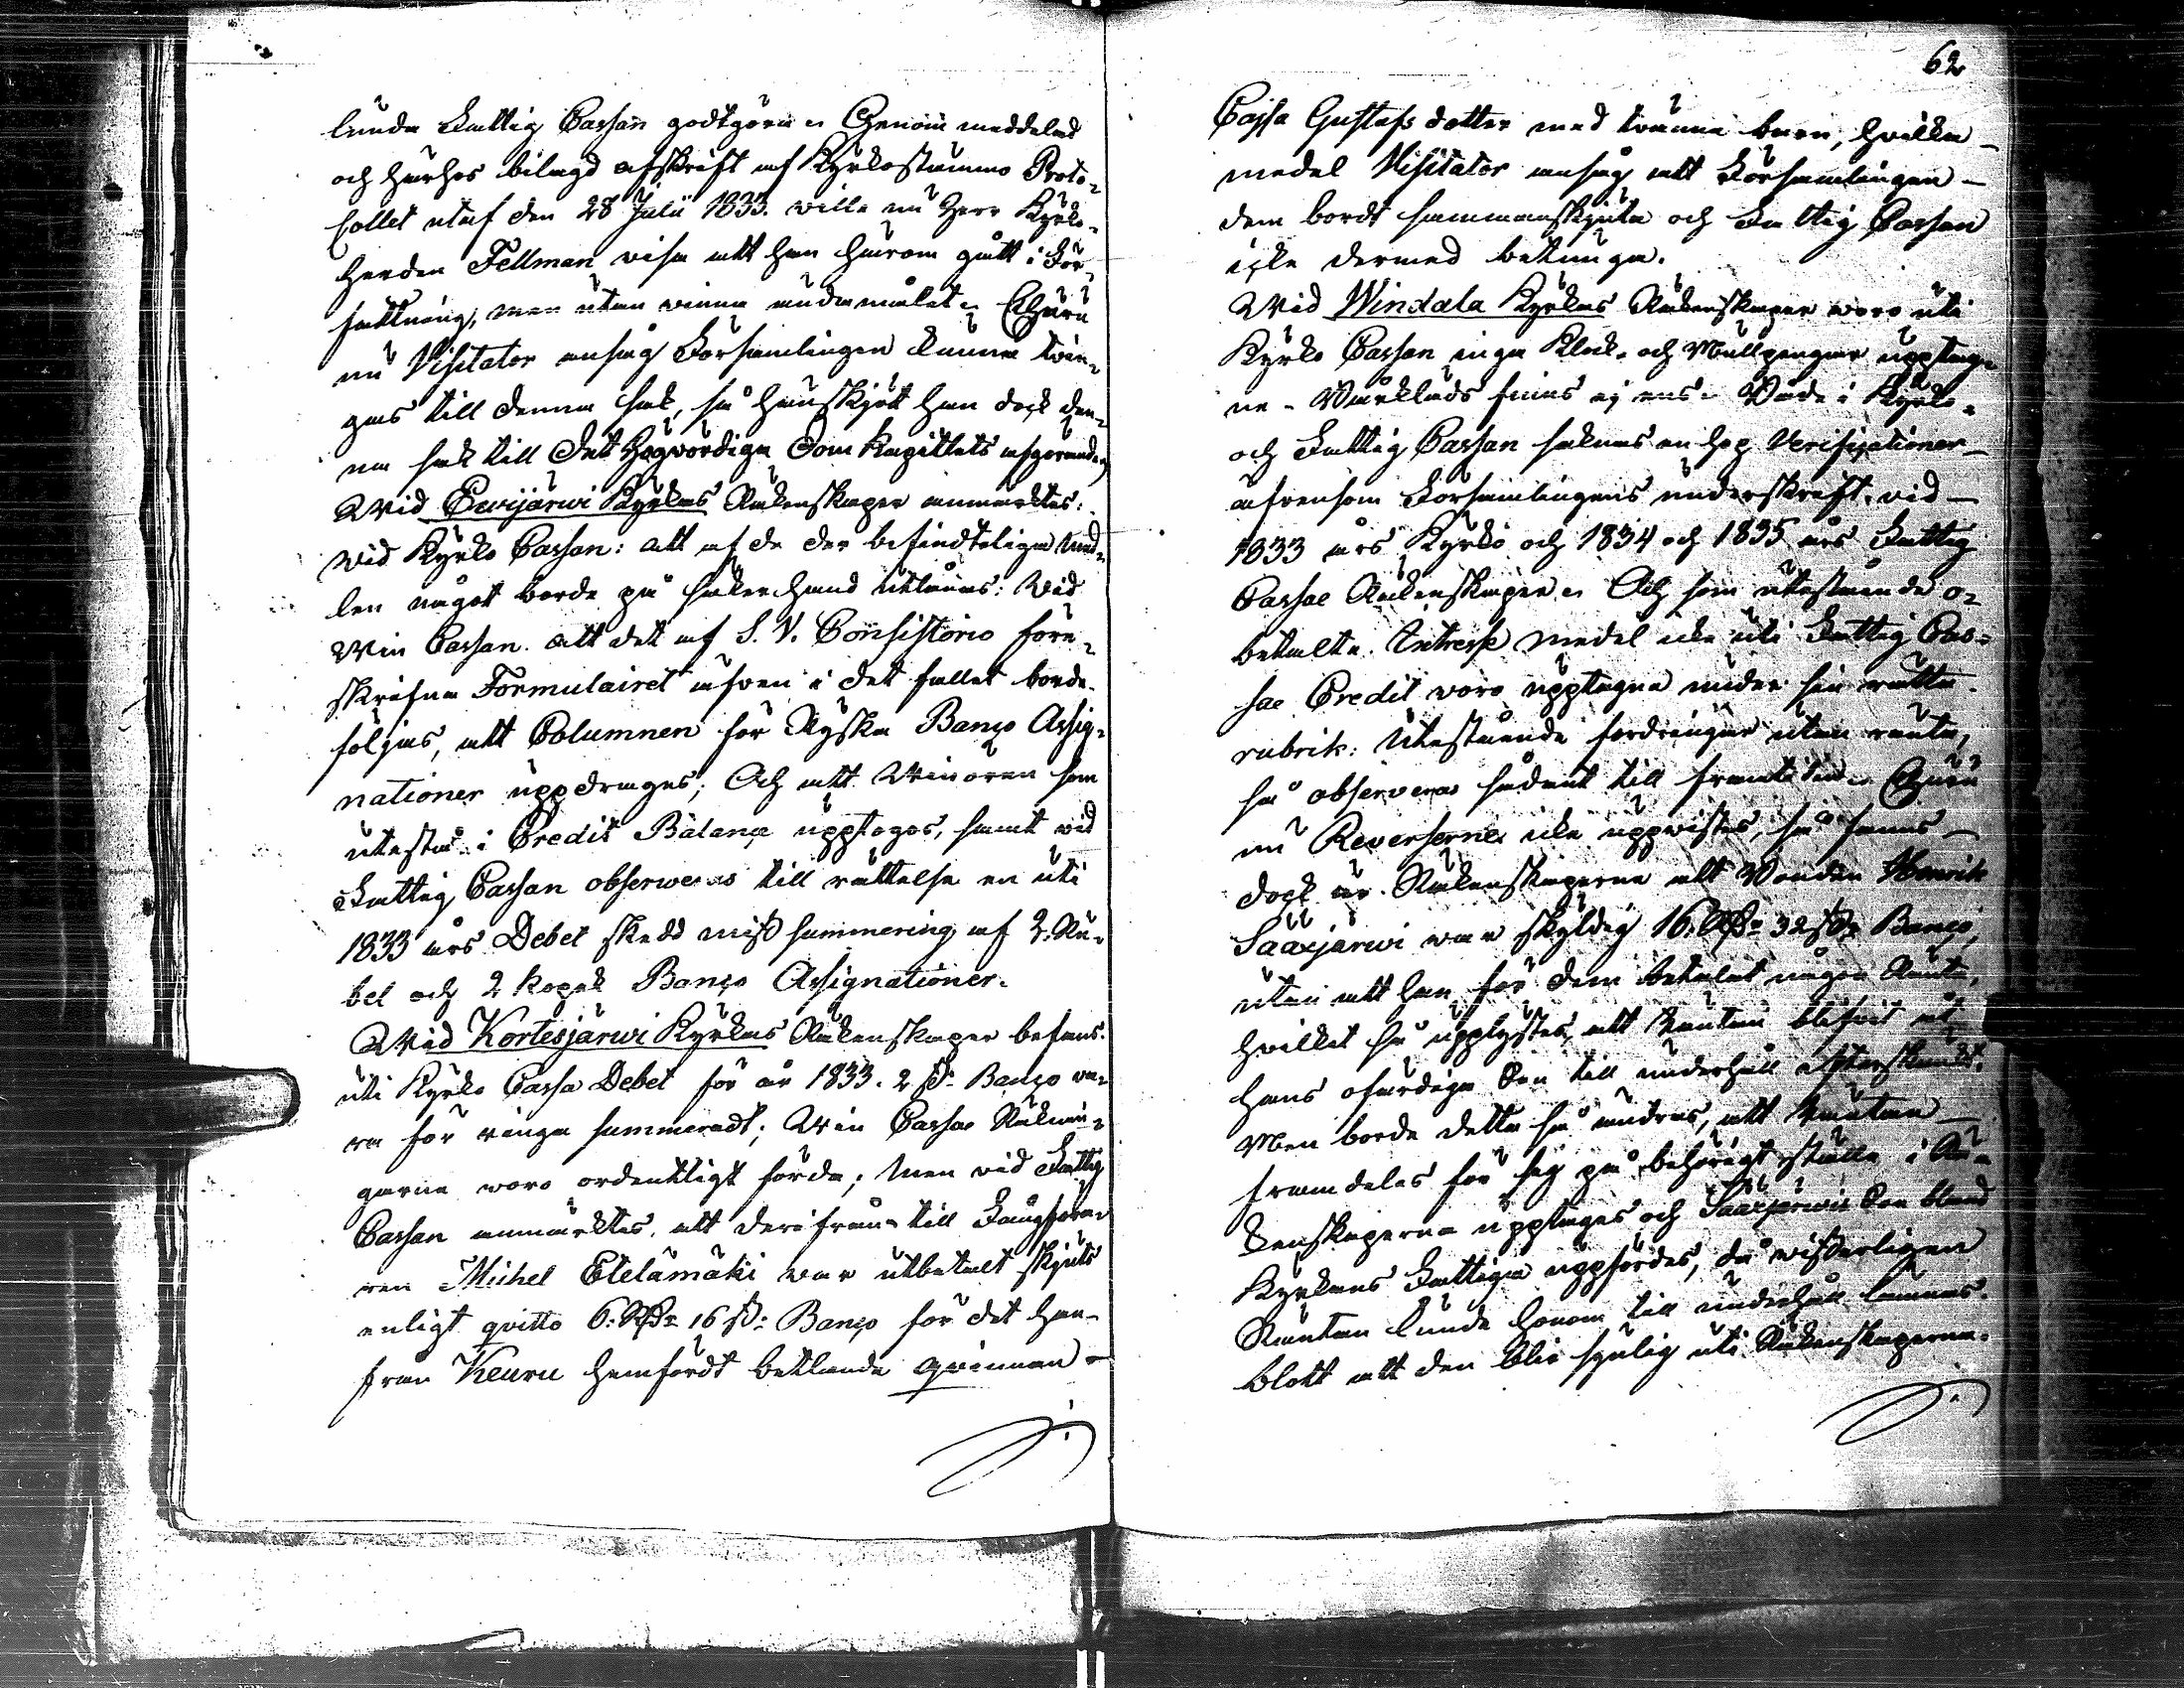 lunda Fattig Cassan godtgöra. Genom meddelad
och härhos bilagd afskrift af Kyrkostämmo Proto-
collet utaf den 28 Julii 1833. ville nu Herr Kyrko-
herden Fellman visa att han härom gått i För-
fattning, men utan vinna ändamålet. Ehuru
nu Visitator ansåg Församlingen kunna tvin-
gas till denna sak, så hänskjöt han dock den-
na sak till Det Högvördiga Domkapittlets afgörande,
Wid Ewijärwi Kyrkas Räkenskaper anmärktes:
vid Kyrko Cassan: att af de der befindteliga Med-
len något borde på säker hand utlånas: Wid
Win Cassan. att det af S. V. Consistorio före-
skrifna Formulairet äfven i det fallet borde
följas, att Columnen för Ryska Banco Assig-
nationer uppdrages; Och att Winören som
utestå i Credit Balance upptagas, samt vid
Fattig Cassan observeras till rättelse en uti
1833 års Debet skedd miss summering af 3. Ru-
bel och 2 kopek Banco Assignationer.
Wid Kortesjärwi Kyrkas Räkenskaper befans.
uti Kyrko Cassa Debet för år 1833. 2 sk: Banco va-
ra för ringa summeradt; Win Cassae Räknin-
garna voro ordentligt förda; Men vid Fattig
Cassan anmärktes, att derifrån till Fångföra-
ren Michel Etelämäki var utbetalt skjuts
enligt qvitto 6: Rdr 16 sk: Banco för det han
från Keuru hemfördt betlande qvinnan
62
Cajsa Gustafsdotter med tvänne barn, hvilka
medel Visitator ansåg att Församlingen
dem bordt sammanskjuta och Fattig Cassan
icke dermed betunga.
Wid Windala Kyrkas Räkenskaper voro uti
Kyrko Cassan inga Klock- och Mullpengar upptag-
ne. Bårkläds finnes ej ens. Både i Kyrko-
och Fattig Cassan saknas en hop Verificationer
äfvensom Församlingens underskrift, vid
1833 års Kyrko och 1834 och 1835 års Fattig
Cassae Räkenskaper. Och som utestående o-
betalta Intresse medel icke uti Fattig Cas-
sae Credit voro upptagna under sin rätta
rubrik: Utestående fordringar utan ränta,
så observeras sådant till framtiden. Ehuru
nu Reverserne icke uppvistes, så fanns
dock ur Räkenskaperna att Bonden Henrik
Sääxjärwi var skyldig 16. Rdr 32 sk: Banco,
utan att han för dem betalat någon Ränta,
hvilket så upplystes, att Räntan blifvit åt
hans ofärdiga Son till underhåll efterskänkt.
Men borde detta så ändras, att Räntan
framdeles för sig på behörigt ställe i Rä-
kenskaperna upptages och Sääxjärwis Son bland
Kyrkans Fattiga uppfördes, då visserligen
Räntan kunde honom till underhåll lämnas
blott att den blir synlig uti Räkenskaperna.